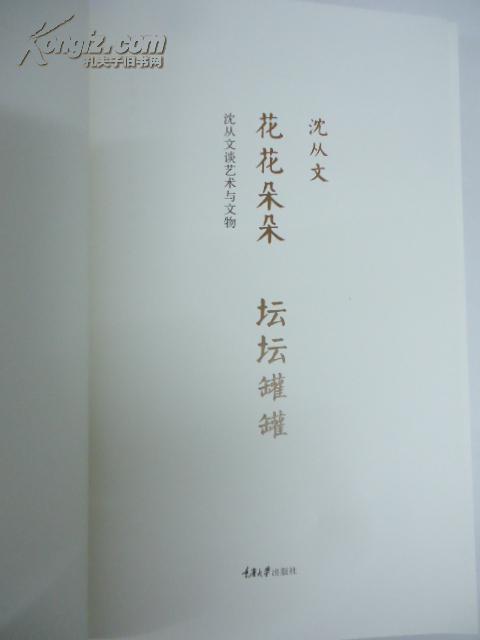 Kongfz.com
孔夫子旧书网
沈从文
花花朵朵 坛坛罐罐
沈从文谈艺术与文物
重庆大学出版社